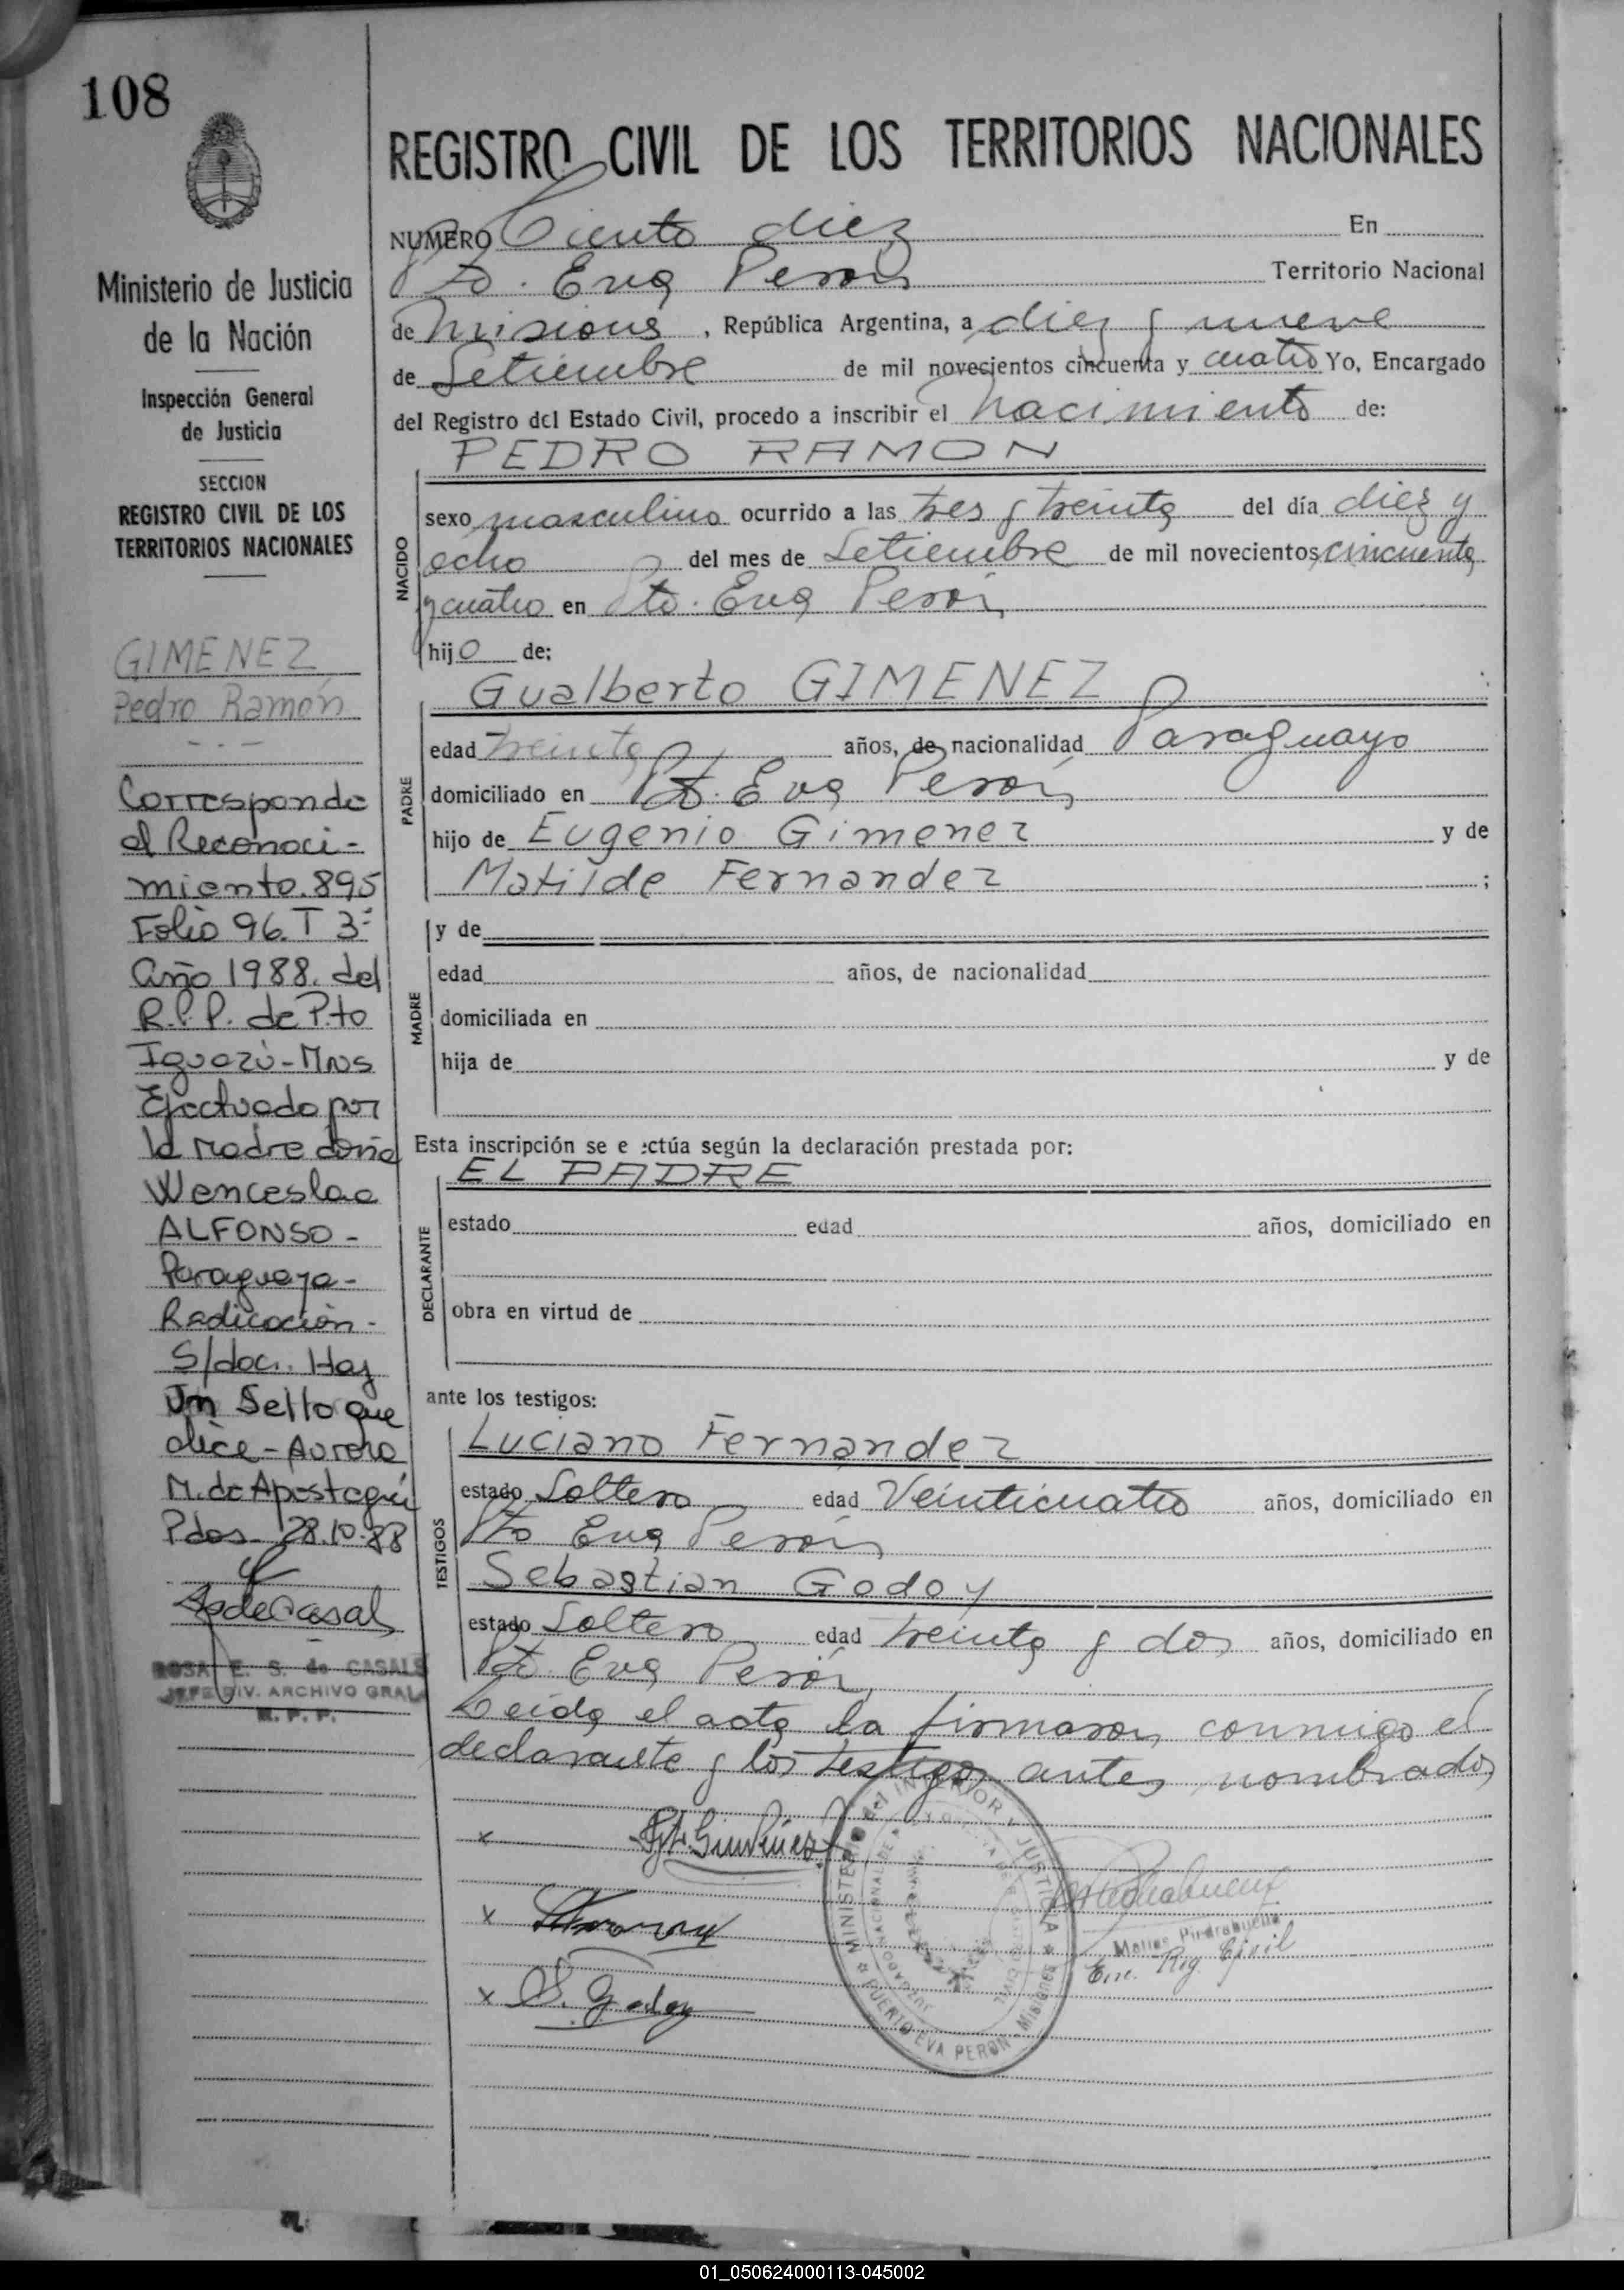 108
REGISTRO CIVIL DE LOS TERRITORIOS NACIONALES
Ministerio de Justicia
de la Nación
Inspección General
de Justicia
SECCION
REGISTRO CIVIL DE LOS
TERRITORIOS NACIONALES
GIMENEZ
Pedro Ramón
Corresponde
al Reconoci-
miento.895
Folio 96. T 3º
año 1988. del
R.P.P. de Pto
Iguazú-Mnes
Efectuado por
la madre doña
Wenceslaa
ALFONSO-
Paraguaya-
Radicación-
S/doc. Hay
Un Sello que
dice-Aurora
M. de Apostegui
Pdas- 28.10.88
ROSA E. S. de CASALS
JEFE DIV. ARCHIVO GRAL.
R. P. P.
NUMERO Ciento diez En
Pto. Eva Perón Territorio Nacional
de Misiones, República Argentina, a diez y nueve
de Setiembre de mil novecientos cincuenta y cuatro Yo, Encargado
del Registro del Estado Civil, procedo a inscribir el nacimiento de:
PEDRO RAMON
NACIDO
sexo masculino ocurrido a las tres y treinta del día diez y
ocho del mes de Setiembre de mil novecientos cincuenta
y cuatro en Pto. Eva Perón
hijo de:
Gualberto GIMENEZ
PADRE
edad treinta años, de nacionalidad Paraguayo
domiciliado en Pto. Eva Perón
hijo de Eugenio Gimenez y de
Matilde Fernandez ;
y de
MADRE
edad años, de nacionalidad
domiciliada en
hija de y de
Esta inscripción se e ectúa según la declaración prestada por:
EL PADRE
DECLARANTE
estado edad años, domiciliado en
obra en virtud de
ante los testigos:
TESTIGOS
Luciano Fernandez
estado Soltero edad Veinticuatro años, domiciliado en
Pto Eva Perón
Sebastian Godoy
estado Soltero edad treinta y dos años, domiciliado en
Pto. Eva Perón
Leida el acta la firmaron conmigo el
declarante y los testigos antes nombrados
x
x
x S. Godoy
MINISTERIO del INTERIOR Y JUSTICIA
PUERTO EVA PERON - MISIONES
Matias Piedrabuena
Enc. Reg. Civil
01_050624000113-045002